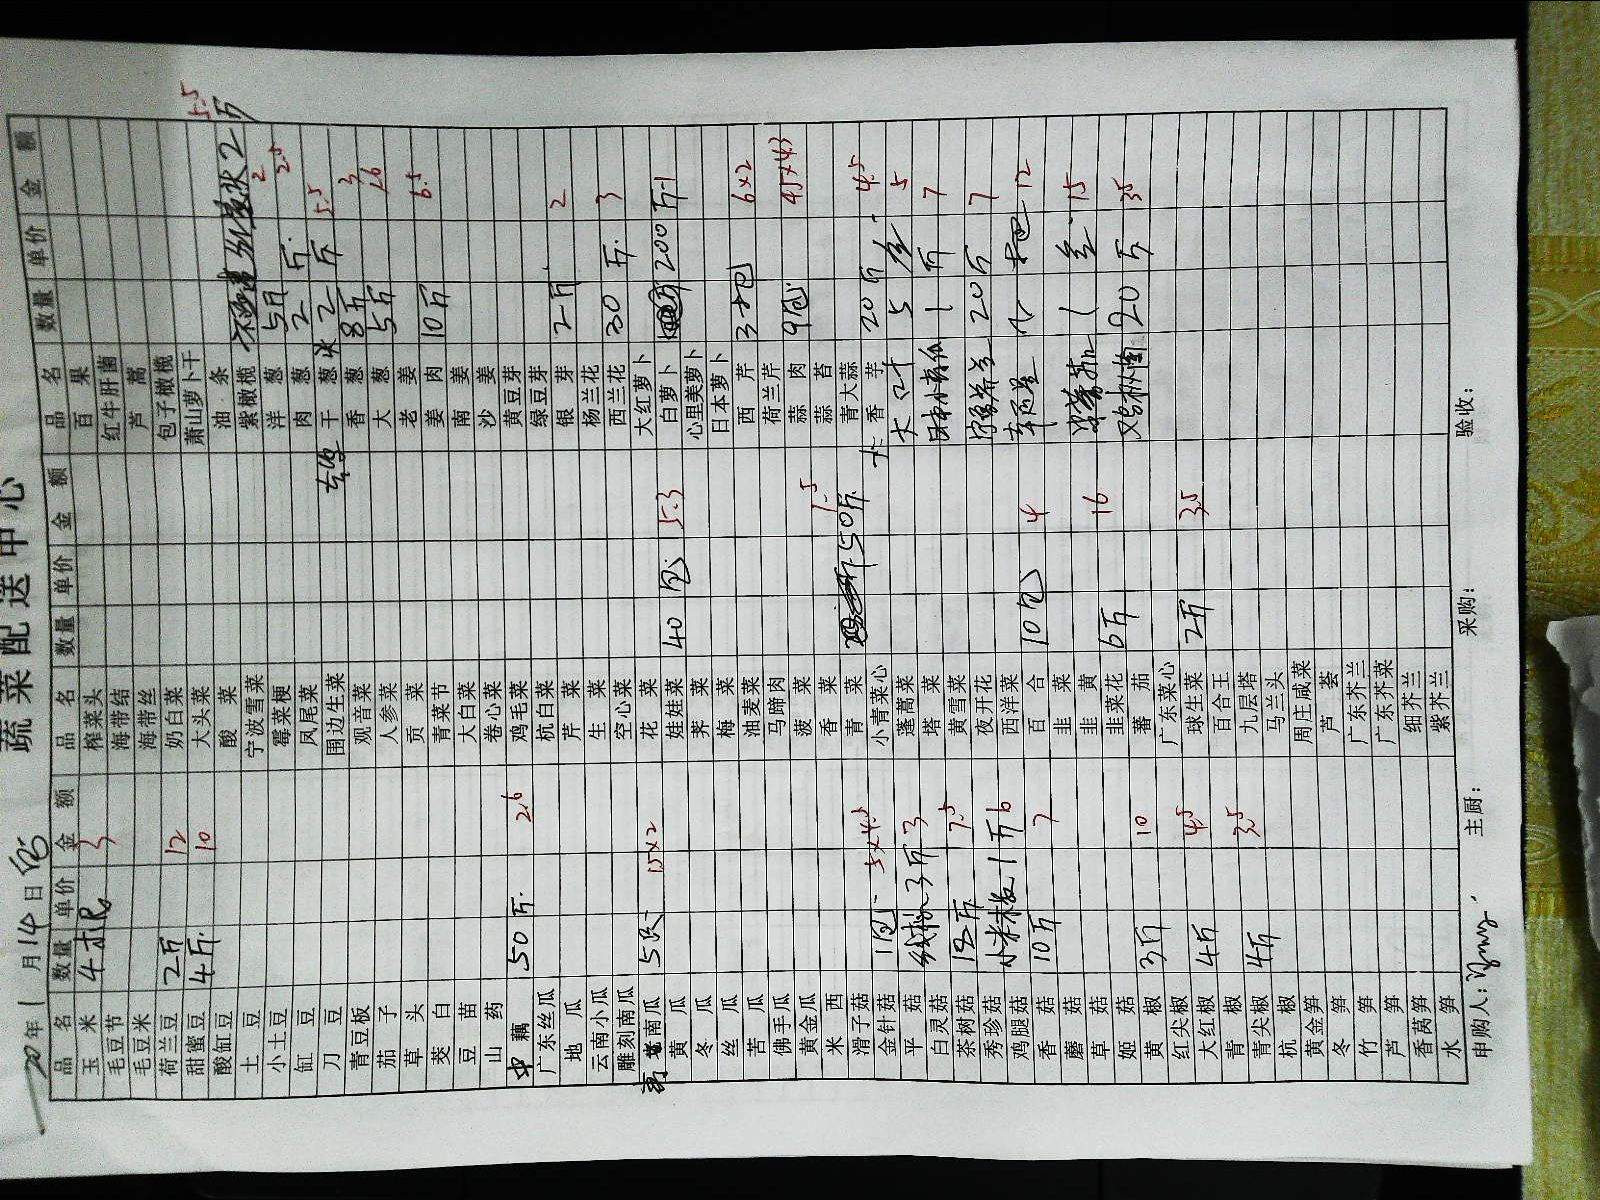 蔬菜配送中心
20 年 1 月 14 日
品名 数量 单价 金额 品名 数量 单价 金额 品名 数量 单价 金额
玉米 4 3 榨菜头 百果
毛豆节 海带结 红牛肝菌
毛豆米 海带丝 芦蒿
荷兰豆 2斤 12 奶白菜 包子橄榄
甜蜜豆 4斤 10 大头菜 萧山萝卜干
酸缸豆 酸菜 油条 2斤 5.5
土豆 宁波雪菜 紫橄榄 2
小土豆 霉菜梗 洋葱 5斤 2.5
缸豆 凤尾菜 肉葱 2斤
刀豆 围边生菜 干葱 2斤 5.5
青豆板 观音菜 香葱 8斤 3
茄子 人参菜 大葱 5斤 2.6
草头 贡菜 老姜
茭白 青菜节 姜肉 10斤 6.5
豆苗 大白菜 南姜
山药 卷心菜 沙姜
中藕 50斤 2.6 鸡毛菜 黄豆芽
广东丝瓜 杭白菜 绿豆芽
地瓜 芹菜 银芽 2斤 2
云南小瓜 生菜 杨兰花
雕刻南瓜 空心菜 西兰花 30斤 3
南瓜 5 15×2 花菜 大红萝卜
黄瓜 娃娃菜 40包 5.3 白萝卜 200斤 1
冬瓜 荠菜 心里美萝卜
丝瓜 梅菜 日本萝卜
苦瓜 油麦菜 西芹 3 6×2
佛手瓜 马蹄肉 荷兰芹
黄金瓜 菠菜 蒜肉 9包 45×4.3
西米 香菜 1.5 蒜苔
滑子菇 青菜 50斤 青大蒜
金针菇 1包 5×4.5 小青菜心 香芋 20斤 4.5
平菇 3斤 3 蓬蒿菜 5 5
白灵菇 塔菜 1斤 7
茶树菇 12斤 7.5 黄雪菜 20斤 7
秀珍菇 小米椒 1斤 6 夜开花 12
鸡腿菇 西洋菜
香菇 10斤 7 百合 10包 4 1 15
蘑菇 韭菜
草菇 韭黄 鸡枞菌 20斤 35
姬菇 韭菜花 6斤 16
黄椒 3斤 10 蕃茄
红尖椒 广东菜心
大红椒 4斤 4.5 球生菜 2斤 3.5
青椒 百合王
青尖椒 4斤 3.5 九层塔
杭椒 马兰头
黄金笋 周庄咸菜
冬笋 芦荟
竹笋 广东芥兰
芦笋 广东芥菜
香莴笋 细芥兰
水笋 紫芥兰
申购人： 主厨： 采购： 验收：